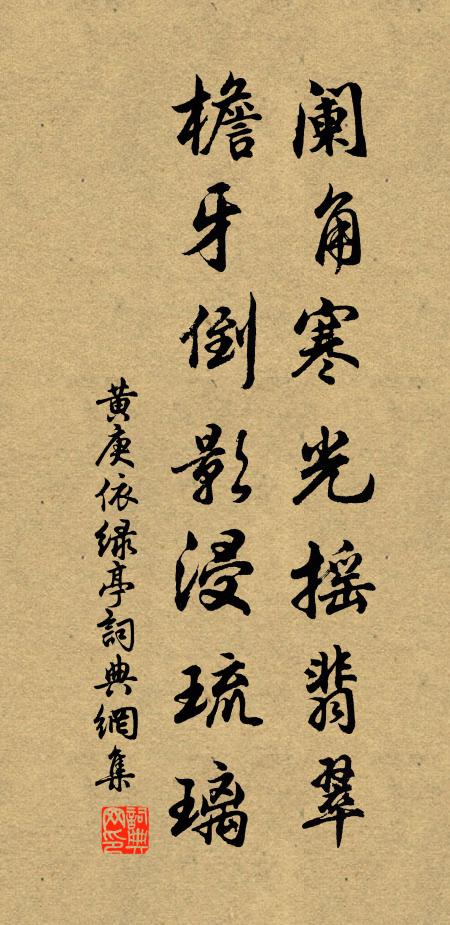 阑角寒光摇翡翠
檐牙倒影浸琉璃
黄庚依绿亭词典網集
詞典网印